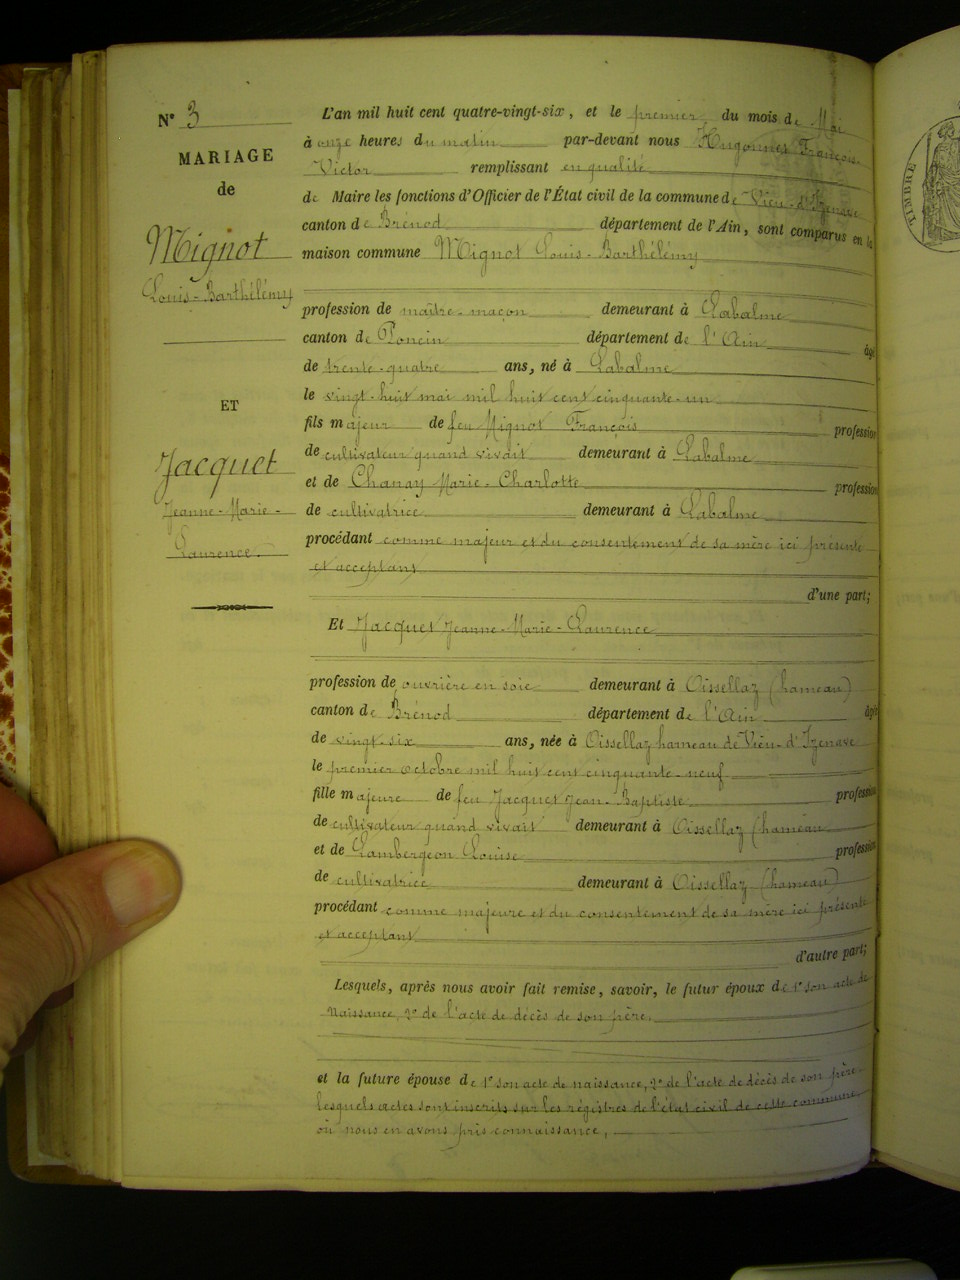 N° 3
MARIAGE
de
Mignot
Louis-Barthélémy
ET
Jacquet
Jeanne-Marie-
Laurence.
L'an mil huit cent quatre-vingt-six, et le premier du mois de Mai
à onze heures du matin par-devant nous Hugonnet François
Victor remplissant en qualité
de Maire les fonctions d'Officier de l'État civil de la commune de Vieu-d'Izenave
canton de Brénod département de l'Ain, sont comparus en la
maison commune Mignot Louis-Barthélémy
profession de maître-maçon demeurant à Labalme
canton de Poncin département de l'Ain âgé
de trente-quatre ans, né à Labalme
le vingt-huit mai mil huit cent cinquante-un
fils majeur de feu Mignot François profession
de cultivateur quand vivait demeurant à Labalme
et de Chanay Marie-Charlotte profession
de cultivatrice demeurant à Labalme
procédant comme majeur et du consentement de sa mère ici présente
et acceptant
d'une part;
Et Jacquet Jeanne-Marie-Laurence
profession de ouvrière en soie demeurant à Oissellaz (hameau)
canton de Brénod département de l'Ain âgée
de vingt-six ans, née à Oissellaz hameau de Vieu-d'Izenave
le premier octobre mil huit cent cinquante-neuf
fille majeure de feu Jacquet Jean-Baptiste profession
de cultivateur quand vivait demeurant à Oissellaz (hameau
et de Lambergeon Louise profession
de cultivatrice demeurant à Oissellaz (hameau)
procédant comme majeure et du consentement de sa mère ici présente
et acceptant
d'autre part;
Lesquels, après nous avoir fait remise, savoir, le futur époux de 1° son acte de
Naissance, 2° de l'acte de décès de son père.
et la future épouse de 1° son acte de naissance, 2° de l'acte de décès de son père
lesquels actes sont inscrits sur les régistres de l'état civil de cette commune
où nous en avons pris connaissance,
TIMBRE